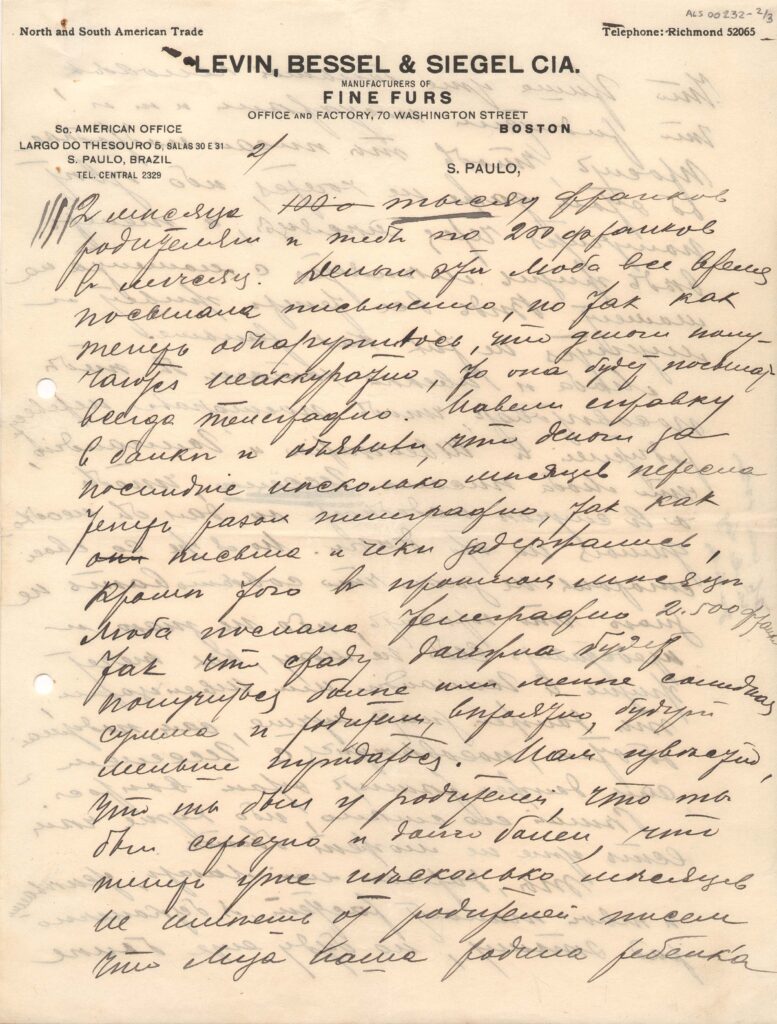 ALS 00232-2/3
North and South American Trade
Telephone: Richmond 52065
LEVIN, BESSEL & SIEGEL CIA.
MANUFACTURERS OF
FINE FURS
OFFICE AND FACTORY, 70 WASHINGTON STREET
BOSTON
So. AMERICAN OFFICE
LARGO DO THESOURO 5, SALAS 30 E 31
S. PAULO, BRAZIL
TEL. CENTRAL 2329
2/
S. PAULO,
2 месяца тысячу франков
родителям и тебе по 200 франков
в месяц. Деньги эти Люба все время
посылала письменно, но так как
теперь обнаружилось, что деньги полу-
чаются неаккуратно, то она будет посылать
всегда телеграфно. Навели справку
в банке и объявили, что деньги за
последние несколько месяцев
теперь разом телеграфно, так как
они письма и чеки задержались,
кроме того в прошлом месяце
Люба послала телеграфно 2.500
так что сразу должна будет
получиться более или менее солидная
сумма и родители, вероятно, будут
меньше нуждаться. Нам
что ты был у родителей, что ты
был серьезно и долго болен, что
теперь уже несколько месяцев
не имеешь от родителей писем
что наша родила ребенка